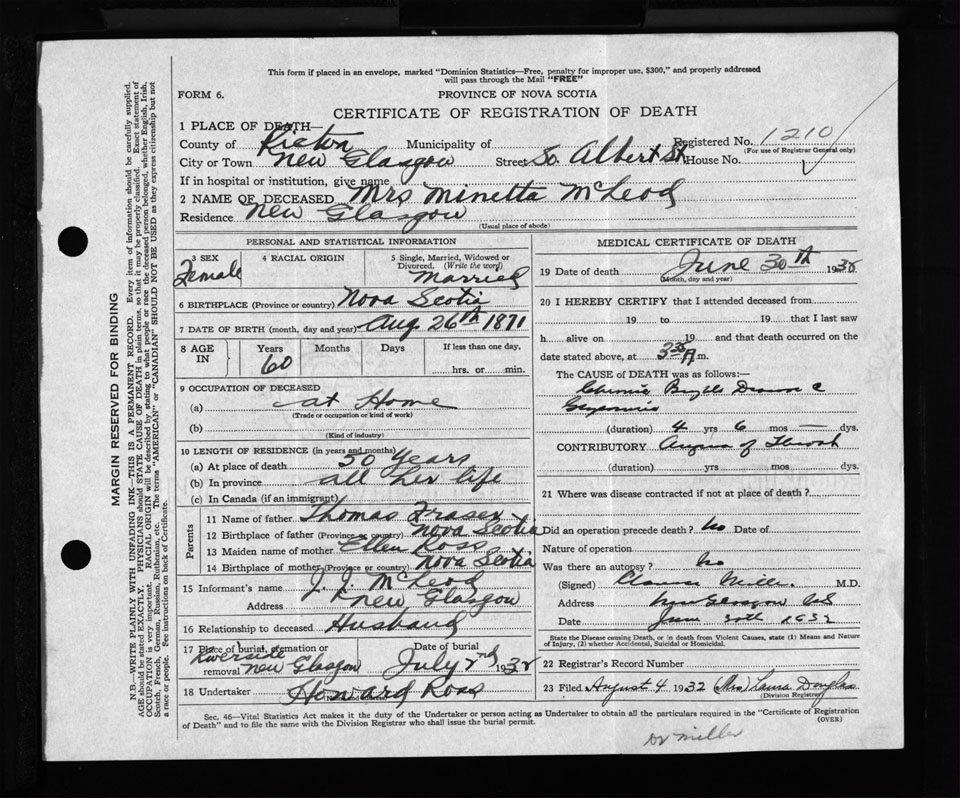 This form if placed in an envelope, marked "Dominion Statistics—Free, penalty for improper use, $300," and properly addressed
will pass through the Mail "FREE"
FORM 6.
PROVINCE OF NOVA SCOTIA
CERTIFICATE OF REGISTRATION OF DEATH
1 PLACE OF DEATH—
Registered No. 1210
(For use of Registrar General only)
County of Pictou Municipality of
City or Town New Glasgow Street So. Albert St House No.
If in hospital or institution, give name
2 NAME OF DECEASED Mrs Minetta McLeod
Residence New Glasgow
(Usual place of abode)
PERSONAL AND STATISTICAL INFORMATION
3 SEX Female
4 RACIAL ORIGIN
5 Single, Married, Widowed or Divorced. (Write the word) Married
6 BIRTHPLACE (Province or country) Nova Scotia
7 DATE OF BIRTH (month, day and year) Aug 26th 1871
8 AGE IN Years 60 Months Days If less than one day, hrs. or min.
9 OCCUPATION OF DECEASED
(a) at Home
(Trade or occupation or kind of work)
(b)
(Kind of industry)
10 LENGTH OF RESIDENCE (in years and months)
(a) At place of death 50 Years
(b) In province all her life
(c) In Canada (if an immigrant)
Parents
11 Name of father Thomas Fraser
12 Birthplace of father (Province or country) Nova Scotia
13 Maiden name of mother Ellen Ross
14 Birthplace of mother (Province or country) Nova Scotia
15 Informant's name J. J. McLeod
Address New Glasgow
16 Relationship to deceased Husband
17 Place of burial, cremation or removal Riverside New Glasgow
Date of burial July 2nd 1932
18 Undertaker Howard Ross
MEDICAL CERTIFICATE OF DEATH
19 Date of death June 30th 1932
(Month, day and year)
20 I HEREBY CERTIFY that I attended deceased from
19 to 19 that I last saw
h alive on 19 and that death occurred on the
date stated above, at 3 35 A m.
The CAUSE of DEATH was as follows:—
Chronic
(duration) 4 yrs 6 mos — dys.
CONTRIBUTORY Angina of Throat
(duration) yrs mos dys.
21 Where was disease contracted if not at place of death?
Did an operation precede death? No Date of
Nature of operation
Was there an autopsy? No
(Signed) Clarence Miller M.D.
Address New Glasgow N.S
Date June 30th 1932
State the Disease causing Death, or in death from Violent Causes, state (1) Means and Nature
of Injury, (2) whether Accidental, Suicidal or Homicidal.
22 Registrar's Record Number
23 Filed August 4 1932 (Mrs) Laura Douglas
(Division Registrar)
Sec. 46—Vital Statistics Act makes it the duty of the Undertaker or person acting as Undertaker to obtain all the particulars required in the "Certificate of Registration
of Death" and to file the same with the Division Registrar who shall issue the burial permit.
(OVER)
Dr Miller
MARGIN RESERVED FOR BINDING
N.B.—WRITE PLAINLY WITH UNFADING INK—THIS IS A PERMANENT RECORD. Every item of information should be carefully supplied.
AGE should be stated EXACTLY. PHYSICIANS should STATE CAUSE OF DEATH in plain terms, so that it may be properly classified. Exact statement of
OCCUPATION is very important. RACIAL ORIGIN will be described by stating to what people or race the deceased person belonged, whether English, Irish,
Scotch, French, German, Russian, Ruthenian, etc. The terms "AMERICAN" or "CANADIAN" SHOULD NOT BE USED as they express citizenship but not
a race or people. See instructions on back of Certificate.